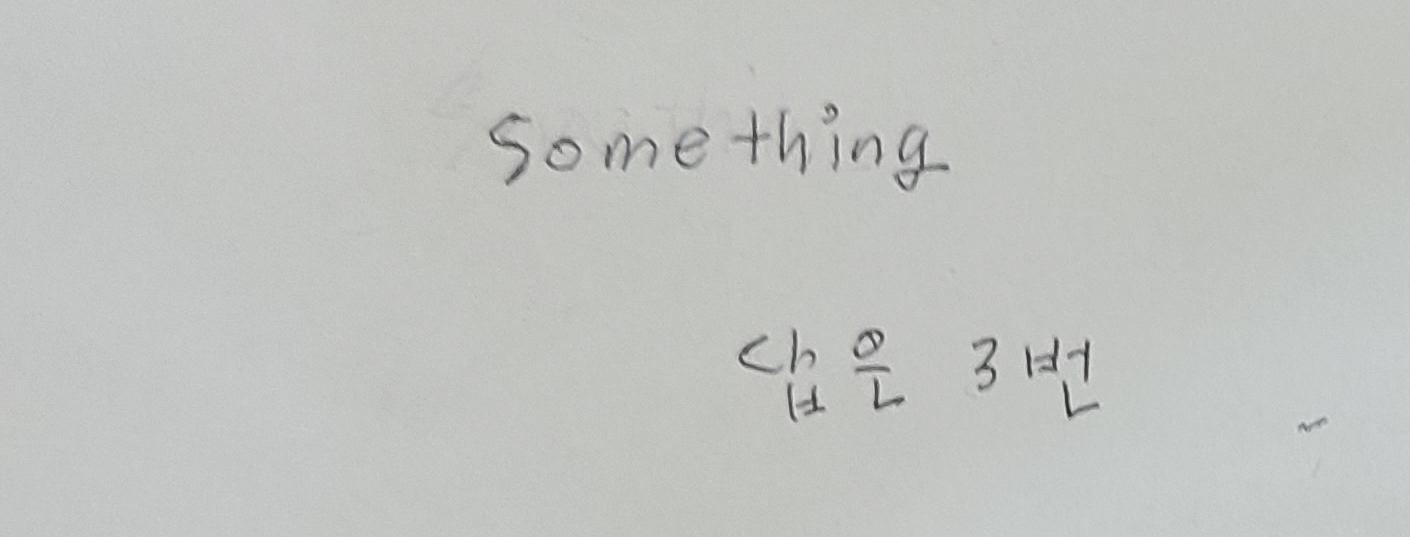 Something
답은 3번